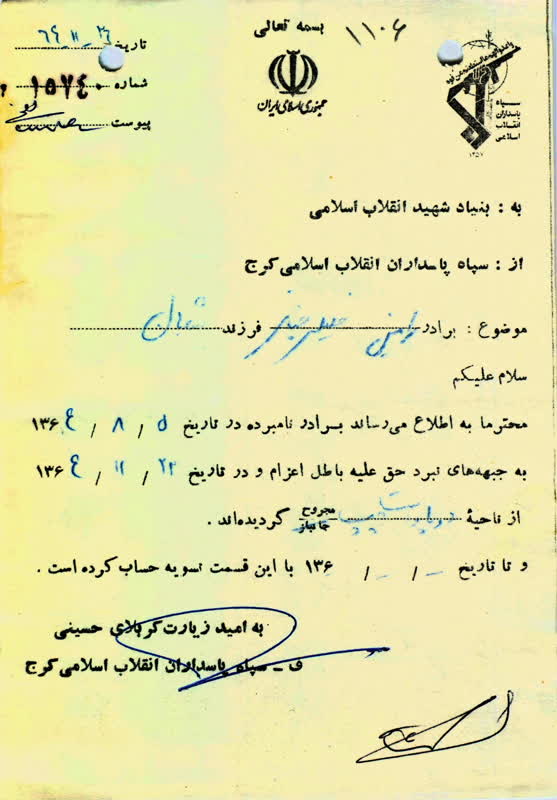 بسمه تعالی
۱۱۰۶
جمهوری اسلامی ایران
سپاه
پاسداران
انقلاب
اسلامی
۱۳۵۷
تاریخ ۶۴-۱۱-۲۶
شماره ۱۵۷۴۰
پیوست
به : بنیاد شهید انقلاب اسلامی
از : سپاه پاسداران انقلاب اسلامی کرج
موضوع : برادر فرزند
سلام علیکم
محترما به اطلاع می‌رساند برادر نامبرده در تاریخ ۵ / ۸ / ۱۳۶۴
به جبهه‌های نبرد حق علیه باطل اعزام و در تاریخ ۲۳ / ۱۱ / ۱۳۶۴
از ناحیهٔ مجروح جانباز گردیده‌اند .
و تا تاریخ - / - / ۱۳۶ با این قسمت تسویه حساب کرده است .
به امید زیارت کربلای حسینی
ف ـ سپاه پاسداران انقلاب اسلامی کرج